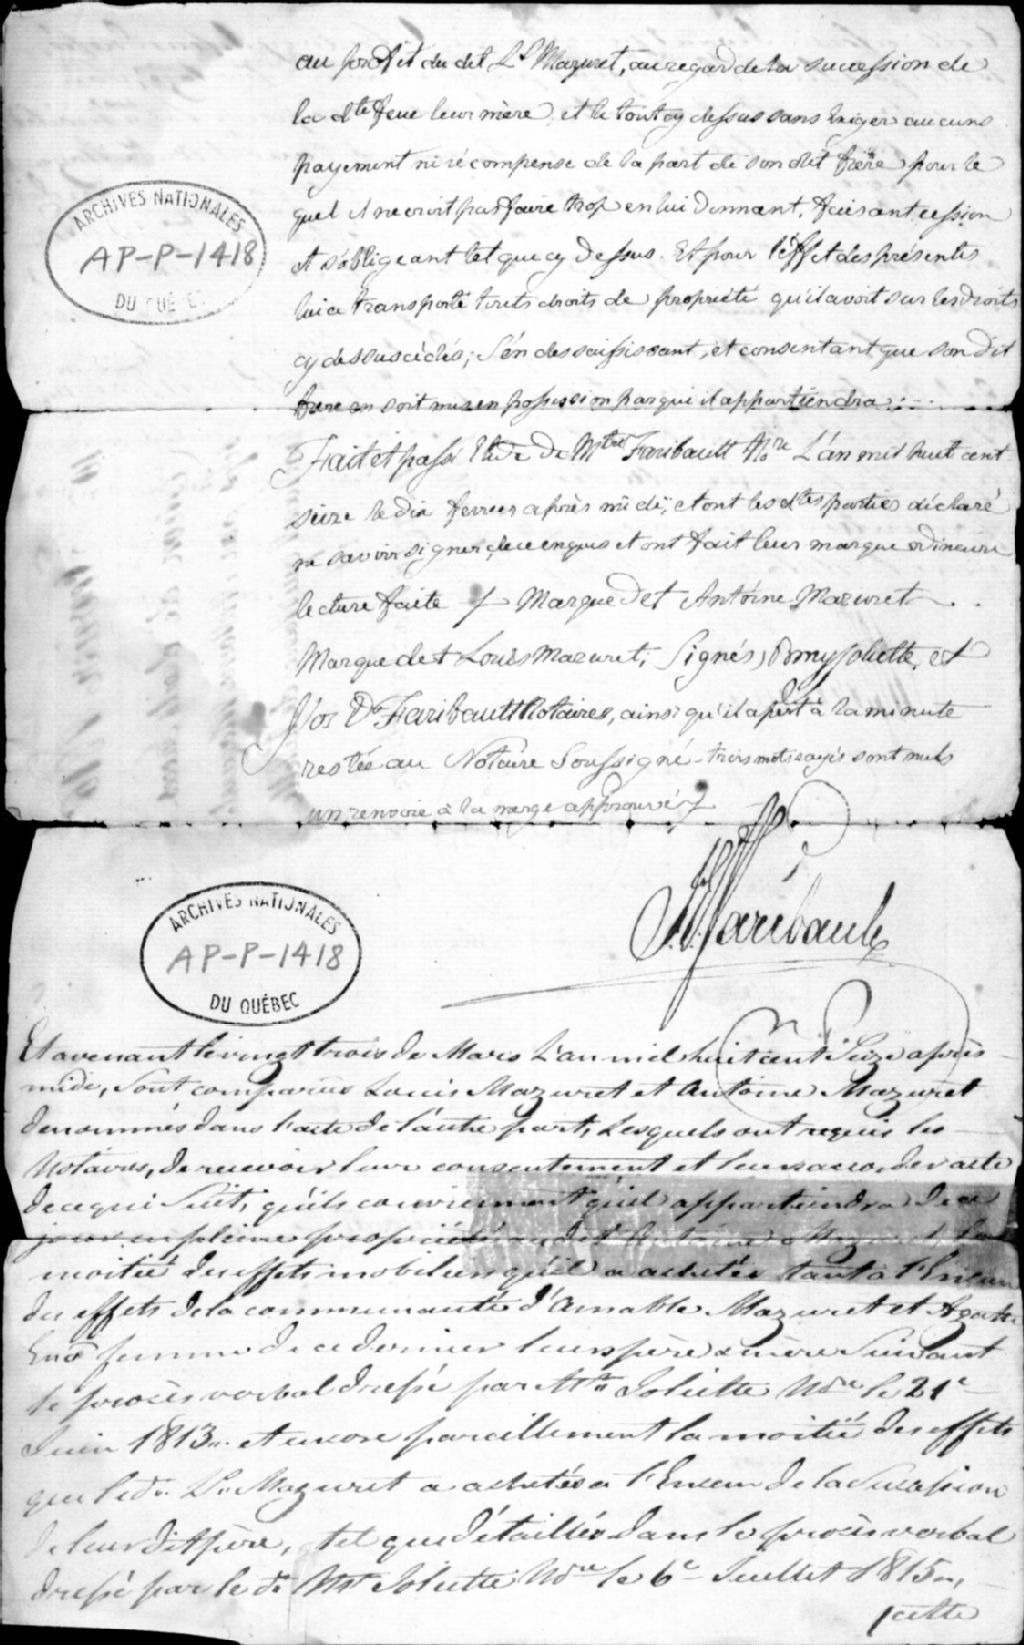 au profit du dit Ls. Mazuret, au regard de la succession de
la dte. feue leur mère, et le tout cy dessus sans exiger aucuns
payement ni récompense de la part de son dit frère pour le
quel il ne croit pas faire trop en lui donnant, faisant cession
et s'obligeant tel que cy dessus. Et pour l'effet des présentes
lui a transporté touts droits de propriété qu'il avoit sur les droits
cy dessus cédés; s'en dessaisissant, et consentant que son dit
frere en soit mis en possession par qui il appartiendra;
ARCHIVES NATIONALES
AP-P-1418
DU QUÉBEC
Fait et passé Etude de Mtre Faribault Nore L'an mil huit cent
seize le dix fevrier après midi, et ont les dtes parties déclaré
ne savoir signer, de ce enquis et ont fait leur marque ordinaire
lecture faite Marque d et Antoine Mazuret
Marque de † Louis Mazuret; Signés, Bmy Joliette, et
Jos Ed Faribault Notaires, ainsi qu'il apert à la minute
restée au Notaire Soussigné - trois mots rayés sont nuls
un renvoie à la marge approuvé
Faribault
ARCHIVES NATIONALES
AP-P-1418
DU QUÉBEC
Et avenant le vingt trois de Mars L'an mil huit cent Seize après
midi, Sont comparus Louis Mazuret et Antoine Mazuret
denommés dans l'acte de l'autre part, Lesquels ont requis les
Notaires, de recevoir leur consentement et leurs accorder acte
de ce qui Suit, qu'ils conviennent qu'il appartiendra de ce
jour en pleine propriété au dit Antoine Mazuret la
moitié des effets mobiliers qu'il a achetés tant à l'Encan
des effets de la communauté d'Amable Mazuret et Agathe
femme de ce dernier leurs père & mère Suivant
le procès verbal dressé par Mtre Joliette Nore le 21e
Juin 1813 et encore pareillement la moitié des effets
que le dt. Ls. Mazuret a achetés à l'Encan de la Succession
de leur dit père, tel que détaillés dans le procès verbal
dressé par le dt Mtre Joliette Nore le 6e Juillet 1815,
cette